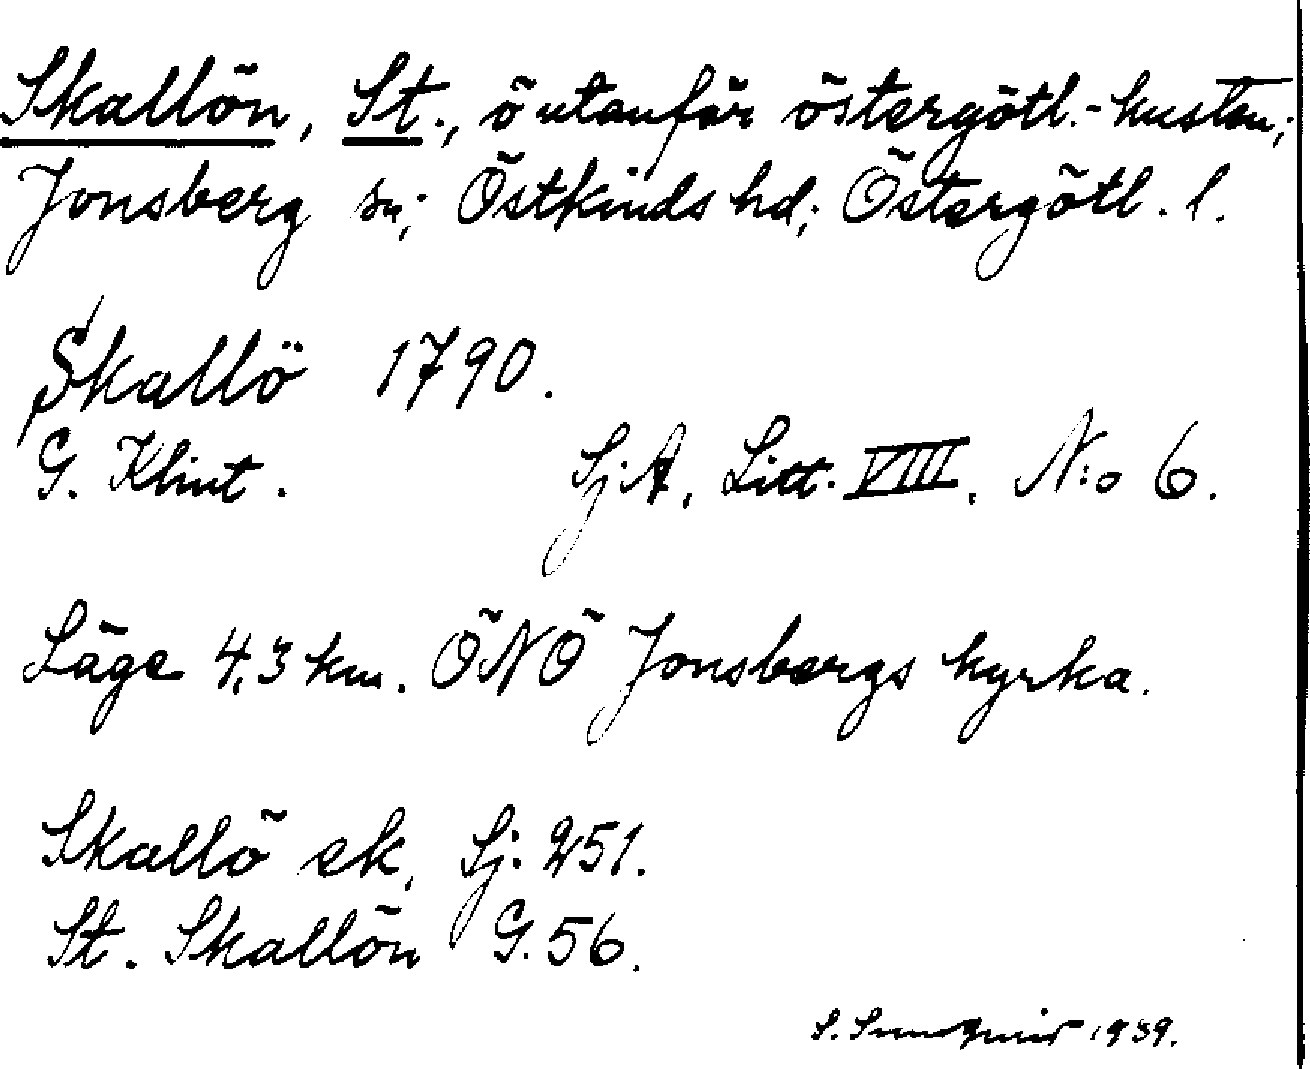 Skallön, St., ö utanför östergötl.-kusten;
Jonsberg sn; Östkinds hd; Östergötl. l.
Skallö 1790.
G. Klint. Sj.A, Litt. VIII, N:o 6.
Läge 4,3 km. ÖNÖ Jonsbergs kyrka.
Skallö ek, Sj. 251.
St. Skallön G. 56.
S. Sundqvist 1939.